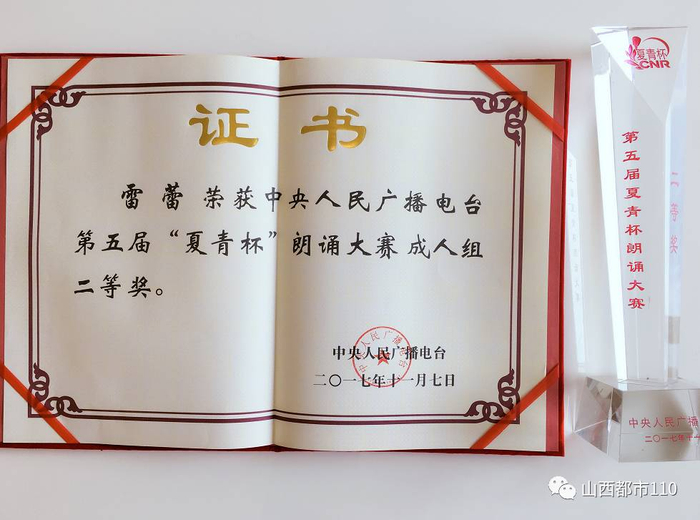 证书
雷蕾 荣获中央人民广播电台
第五届“夏青杯”朗诵大赛成人组
二等奖。
中央人民广播电台
二〇一七年十一月七日
中央人民广播电台
夏青杯
CNR
第五届夏青杯朗诵大赛
二等奖
中央人民广播
二〇一七年十
山西都市110